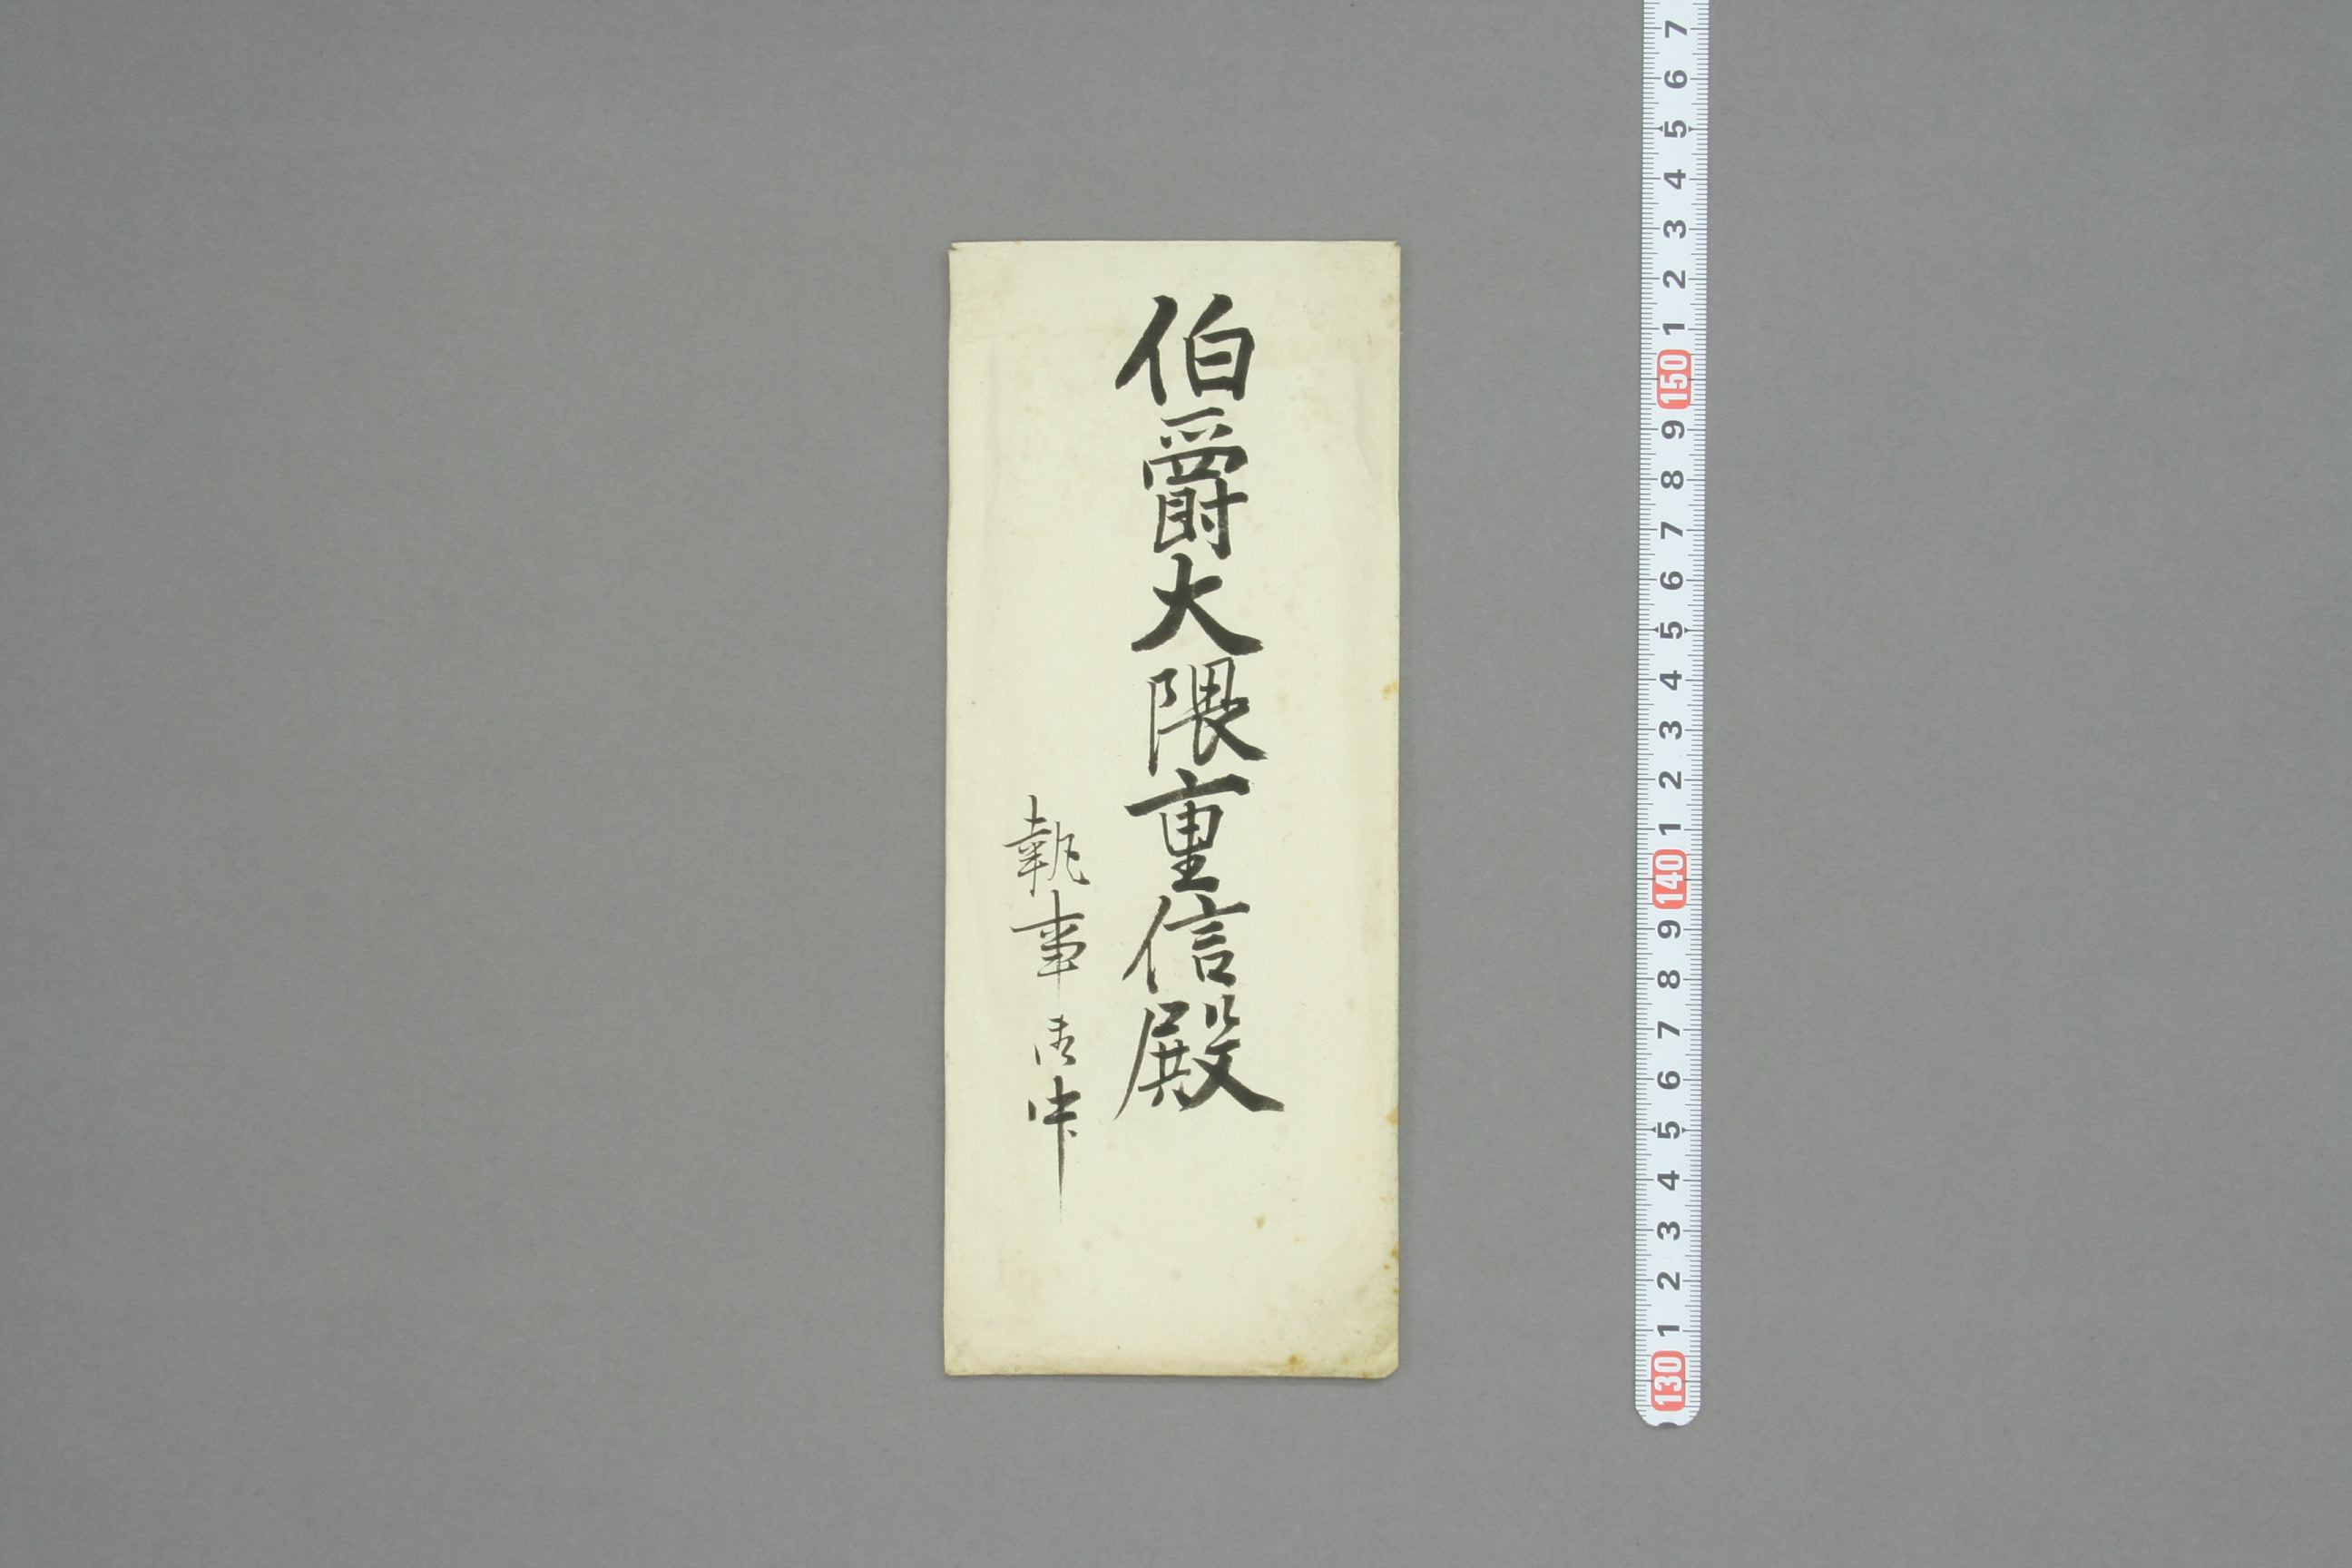 伯爵大隈重信殿
執事御中
7
6
5
4
3
2
1
150
9
8
7
6
5
4
3
2
1
140
9
8
7
6
5
4
3
2
1
130